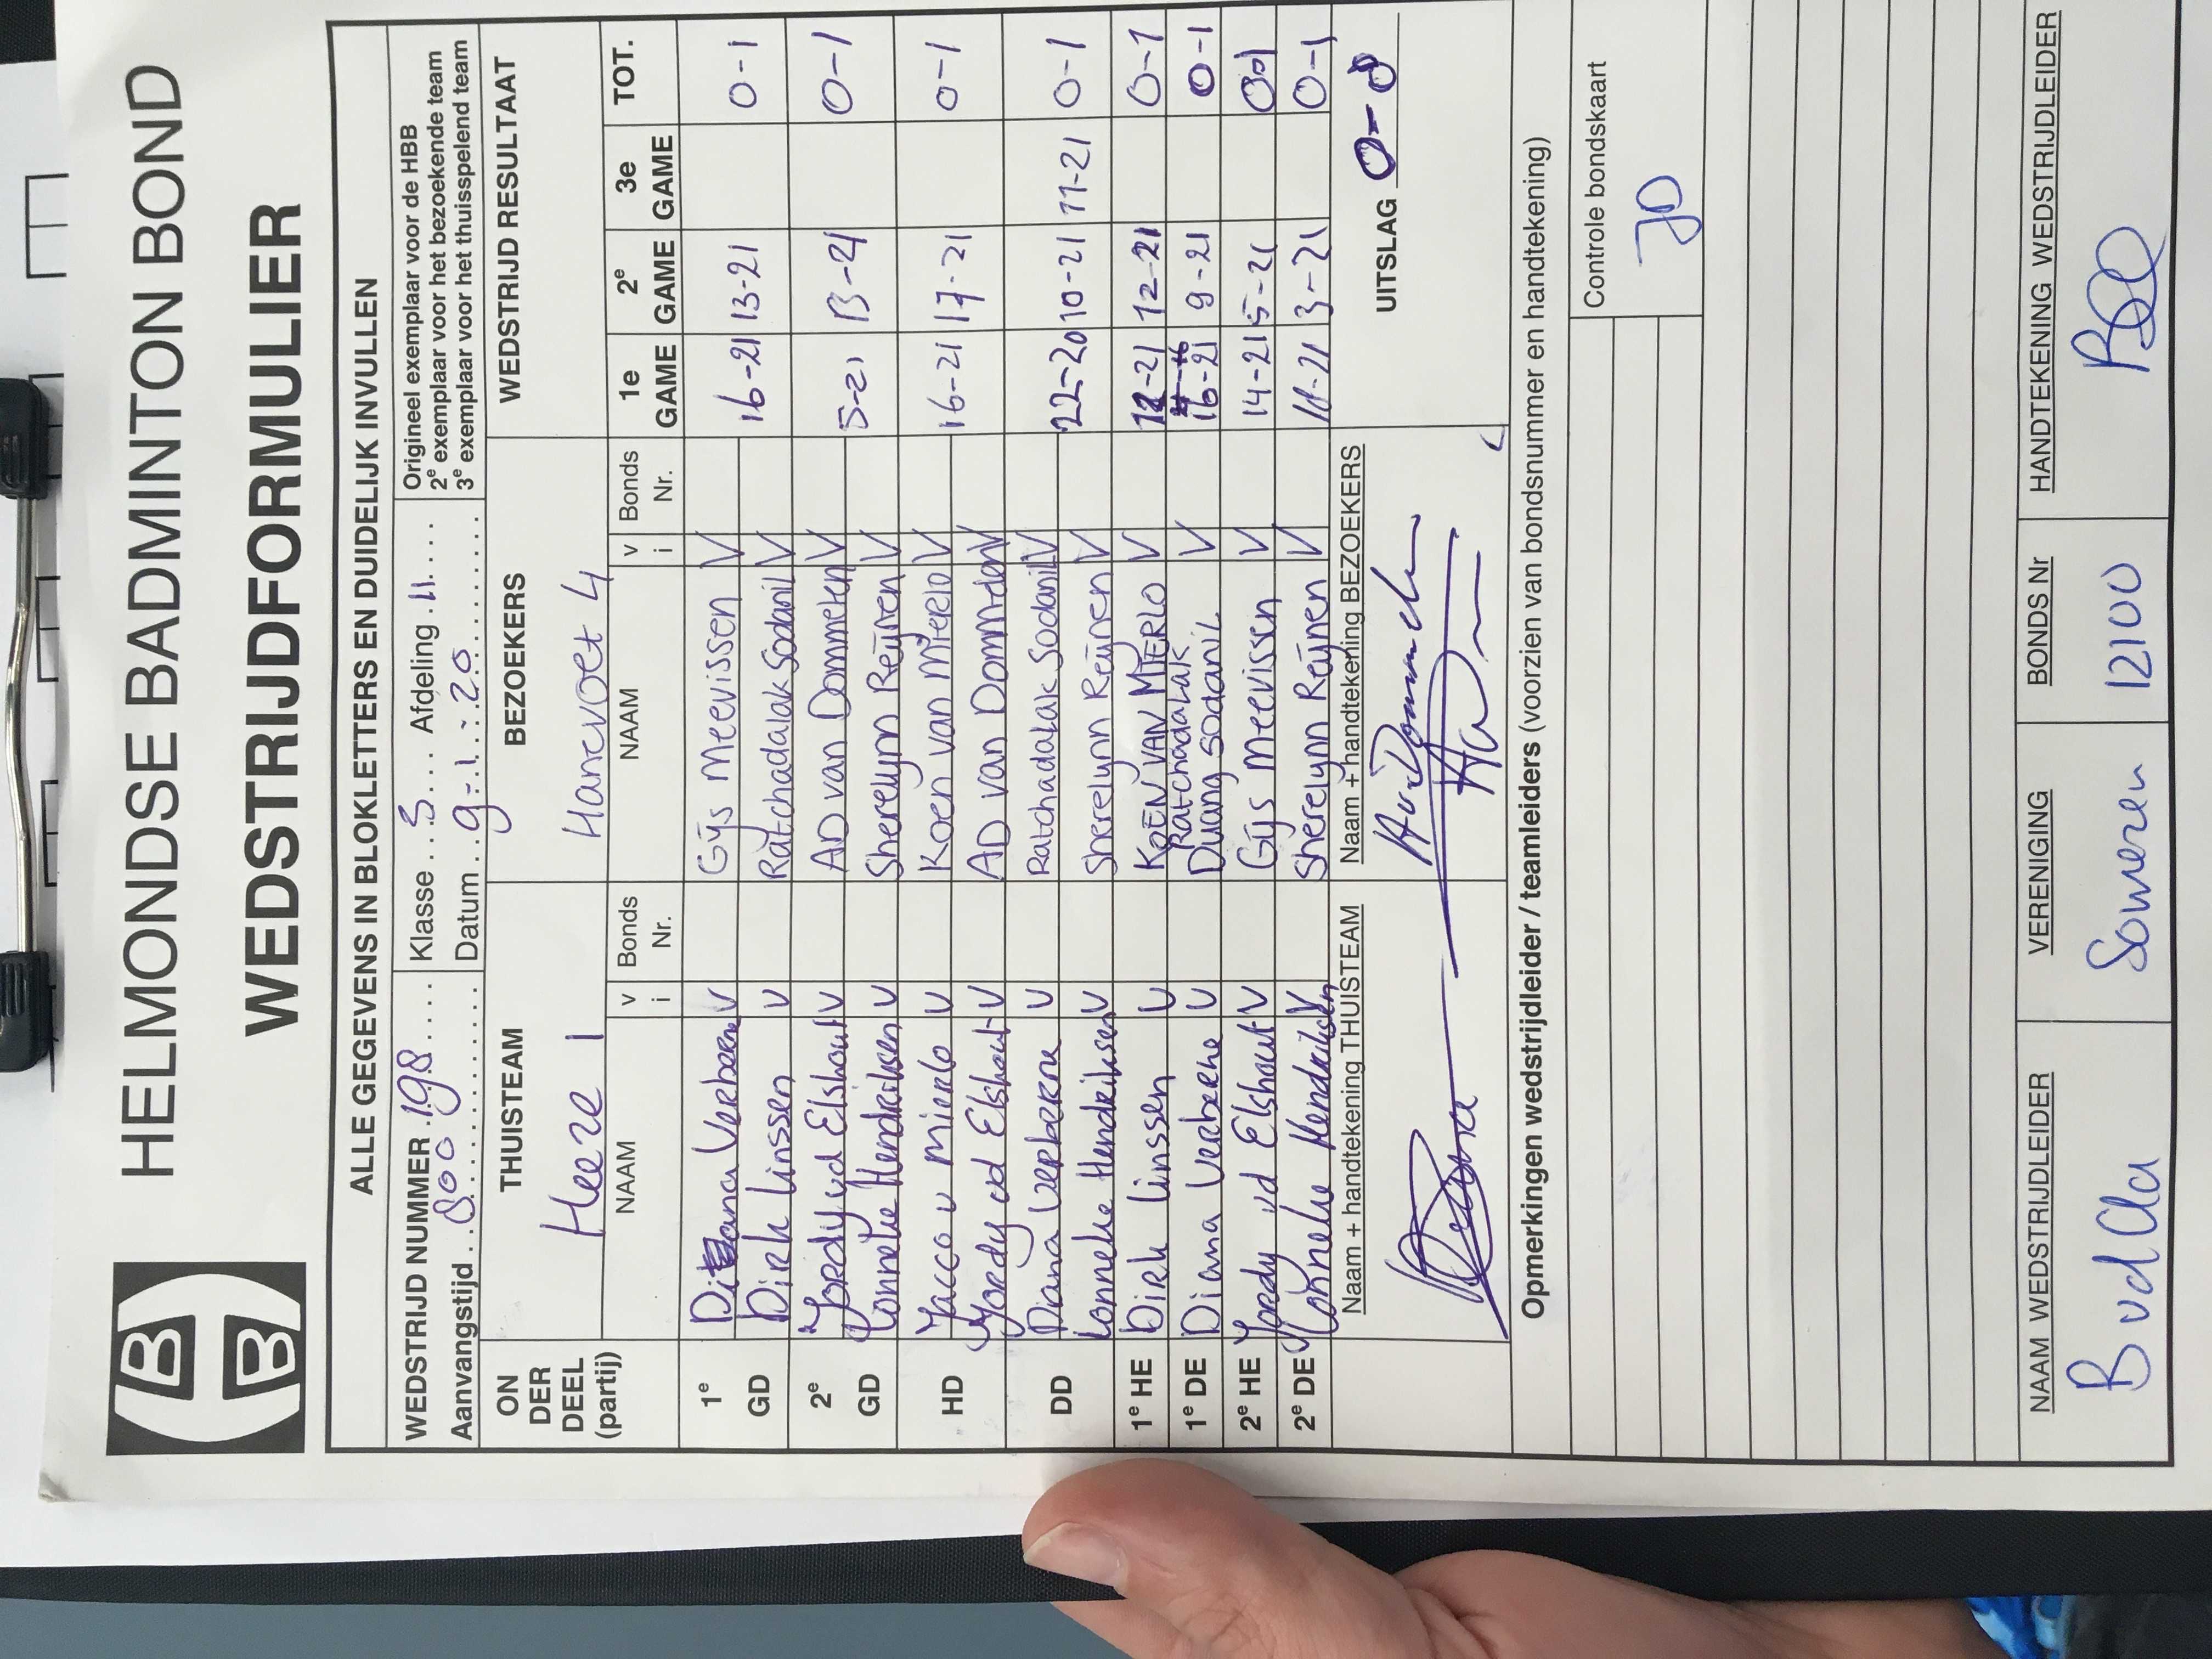 HELMONDSE BADMINTON BOND
WEDSTRIJDFORMULIER
ALLE GEGEVENS IN BLOKLETTERS EN DUIDELIJK INVULLEN
WEDSTRIJD NUMMER 198 Klasse 3 Afdeling 11
Aanvangstijd 800 Datum 9-1-20
Origineel exemplaar voor de HBB
2e exemplaar voor het bezoekende team
3e exemplaar voor het thuisspelend team
ON DER DEEL (partij) THUISTEAM BEZOEKERS WEDSTRIJD RESULTAAT
Heeze 1 Hanevoet 4
NAAM v i Bonds Nr. NAAM v i Bonds Nr. 1e GAME 2e GAME 3e GAME TOT.
1e GD Diana Verberne V Gijs Meevissen V 16-21 13-21 0-1
Dirk Linssen V Ratchadalak Sodanil V
2e GD Yordy vd Elshout V AD van Dommelen V 5-21 13-21 0-1
Lonneke Hendriksen V Sherelynn Reijnen V
HD Jacco v Mierlo V Koen van Mierlo V 16-21 17-21 0-1
Yordy vd Elshout V AD van Dommelen V
DD Diana Verberne V Ratchadalak Sodanil V 22-20 10-21 11-21 0-1
Lonneke Hendriksen V Sherelynn Reijnen V
1e HE Dirk Linssen V KOEN VAN MIERLO V 12-21 12-21 0-1
1e DE Diana Verberne V Ratchadalak Duang sodanil V 16-21 9-21 0-1
2e HE Yordy vd Elshout V Gijs Meevissen V 14-21 5-21 0-1
2e DE Lonneke Hendriksen V Sherelynn Reijnen V 11-21 3-21 0-1
Naam + handtekening THUISTEAM Naam + handtekening BEZOEKERS
UITSLAG 0-8
Opmerkingen wedstrijdleider / teamleiders (voorzien van bondsnummer en handtekening)
Controle bondskaart
NAAM WEDSTRIJDLEIDER VERENIGING BONDS Nr HANDTEKENING WEDSTRIJDLEIDER
Someren 12100